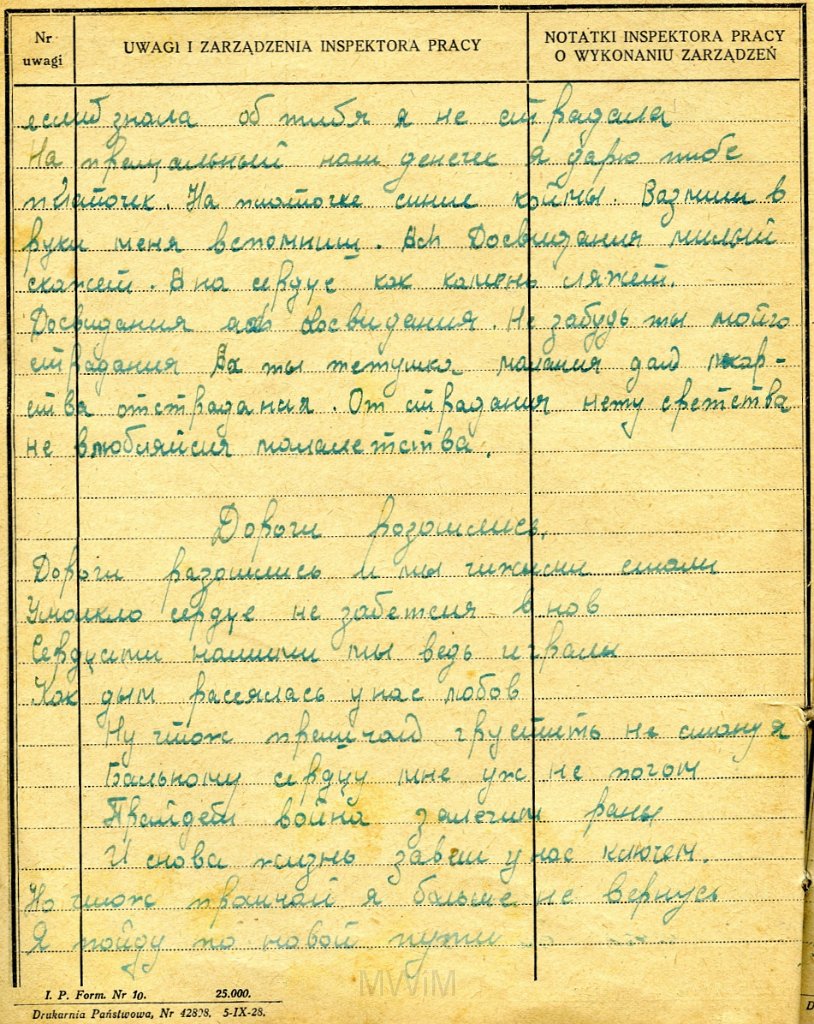 Nr uwagi
UWAGI I ZARZĄDZENIA INSPEKTORA PRACY
NOTATKI INSPEKTORA PRACY
O WYKONANIU ZARZĄDZEŃ
еслиб знала об тибя я не страдала
На прещальный наш денечек я дарю тибе
платочек. На платочке синие коймы. Вазмиш в
руки меня вспомниш. Ach Досвидания милый
скажет. А на сердце как камень ляжет.
Досвидания ach досвидания. Не забудь ты мойго
страдания Ах ты тетушка малания дай лекар-
ства отстрадания. От страдания нету сретства
не влюбляйсия малалетства.
Дороги разошлись.
Дороги разошлись и мы чижыми стали
Умолкло сердце не забетсия вновь
Сердцами нашими мы ведь играли
Как дым рассеялась у нас любов
Ну чтож прешчай грустить не стану я
Бальному сердцу мне уж не погом
Прайдет война залечим раны
И снова жизнь завет у нас ключем.
Но чтож прашчай я больше не вернусь
Я пойду по новой пути
MWiM
I. P. Form. Nr 10. 25.000.
Drukarnia Państwowa, Nr 42898. 5-IX-28.